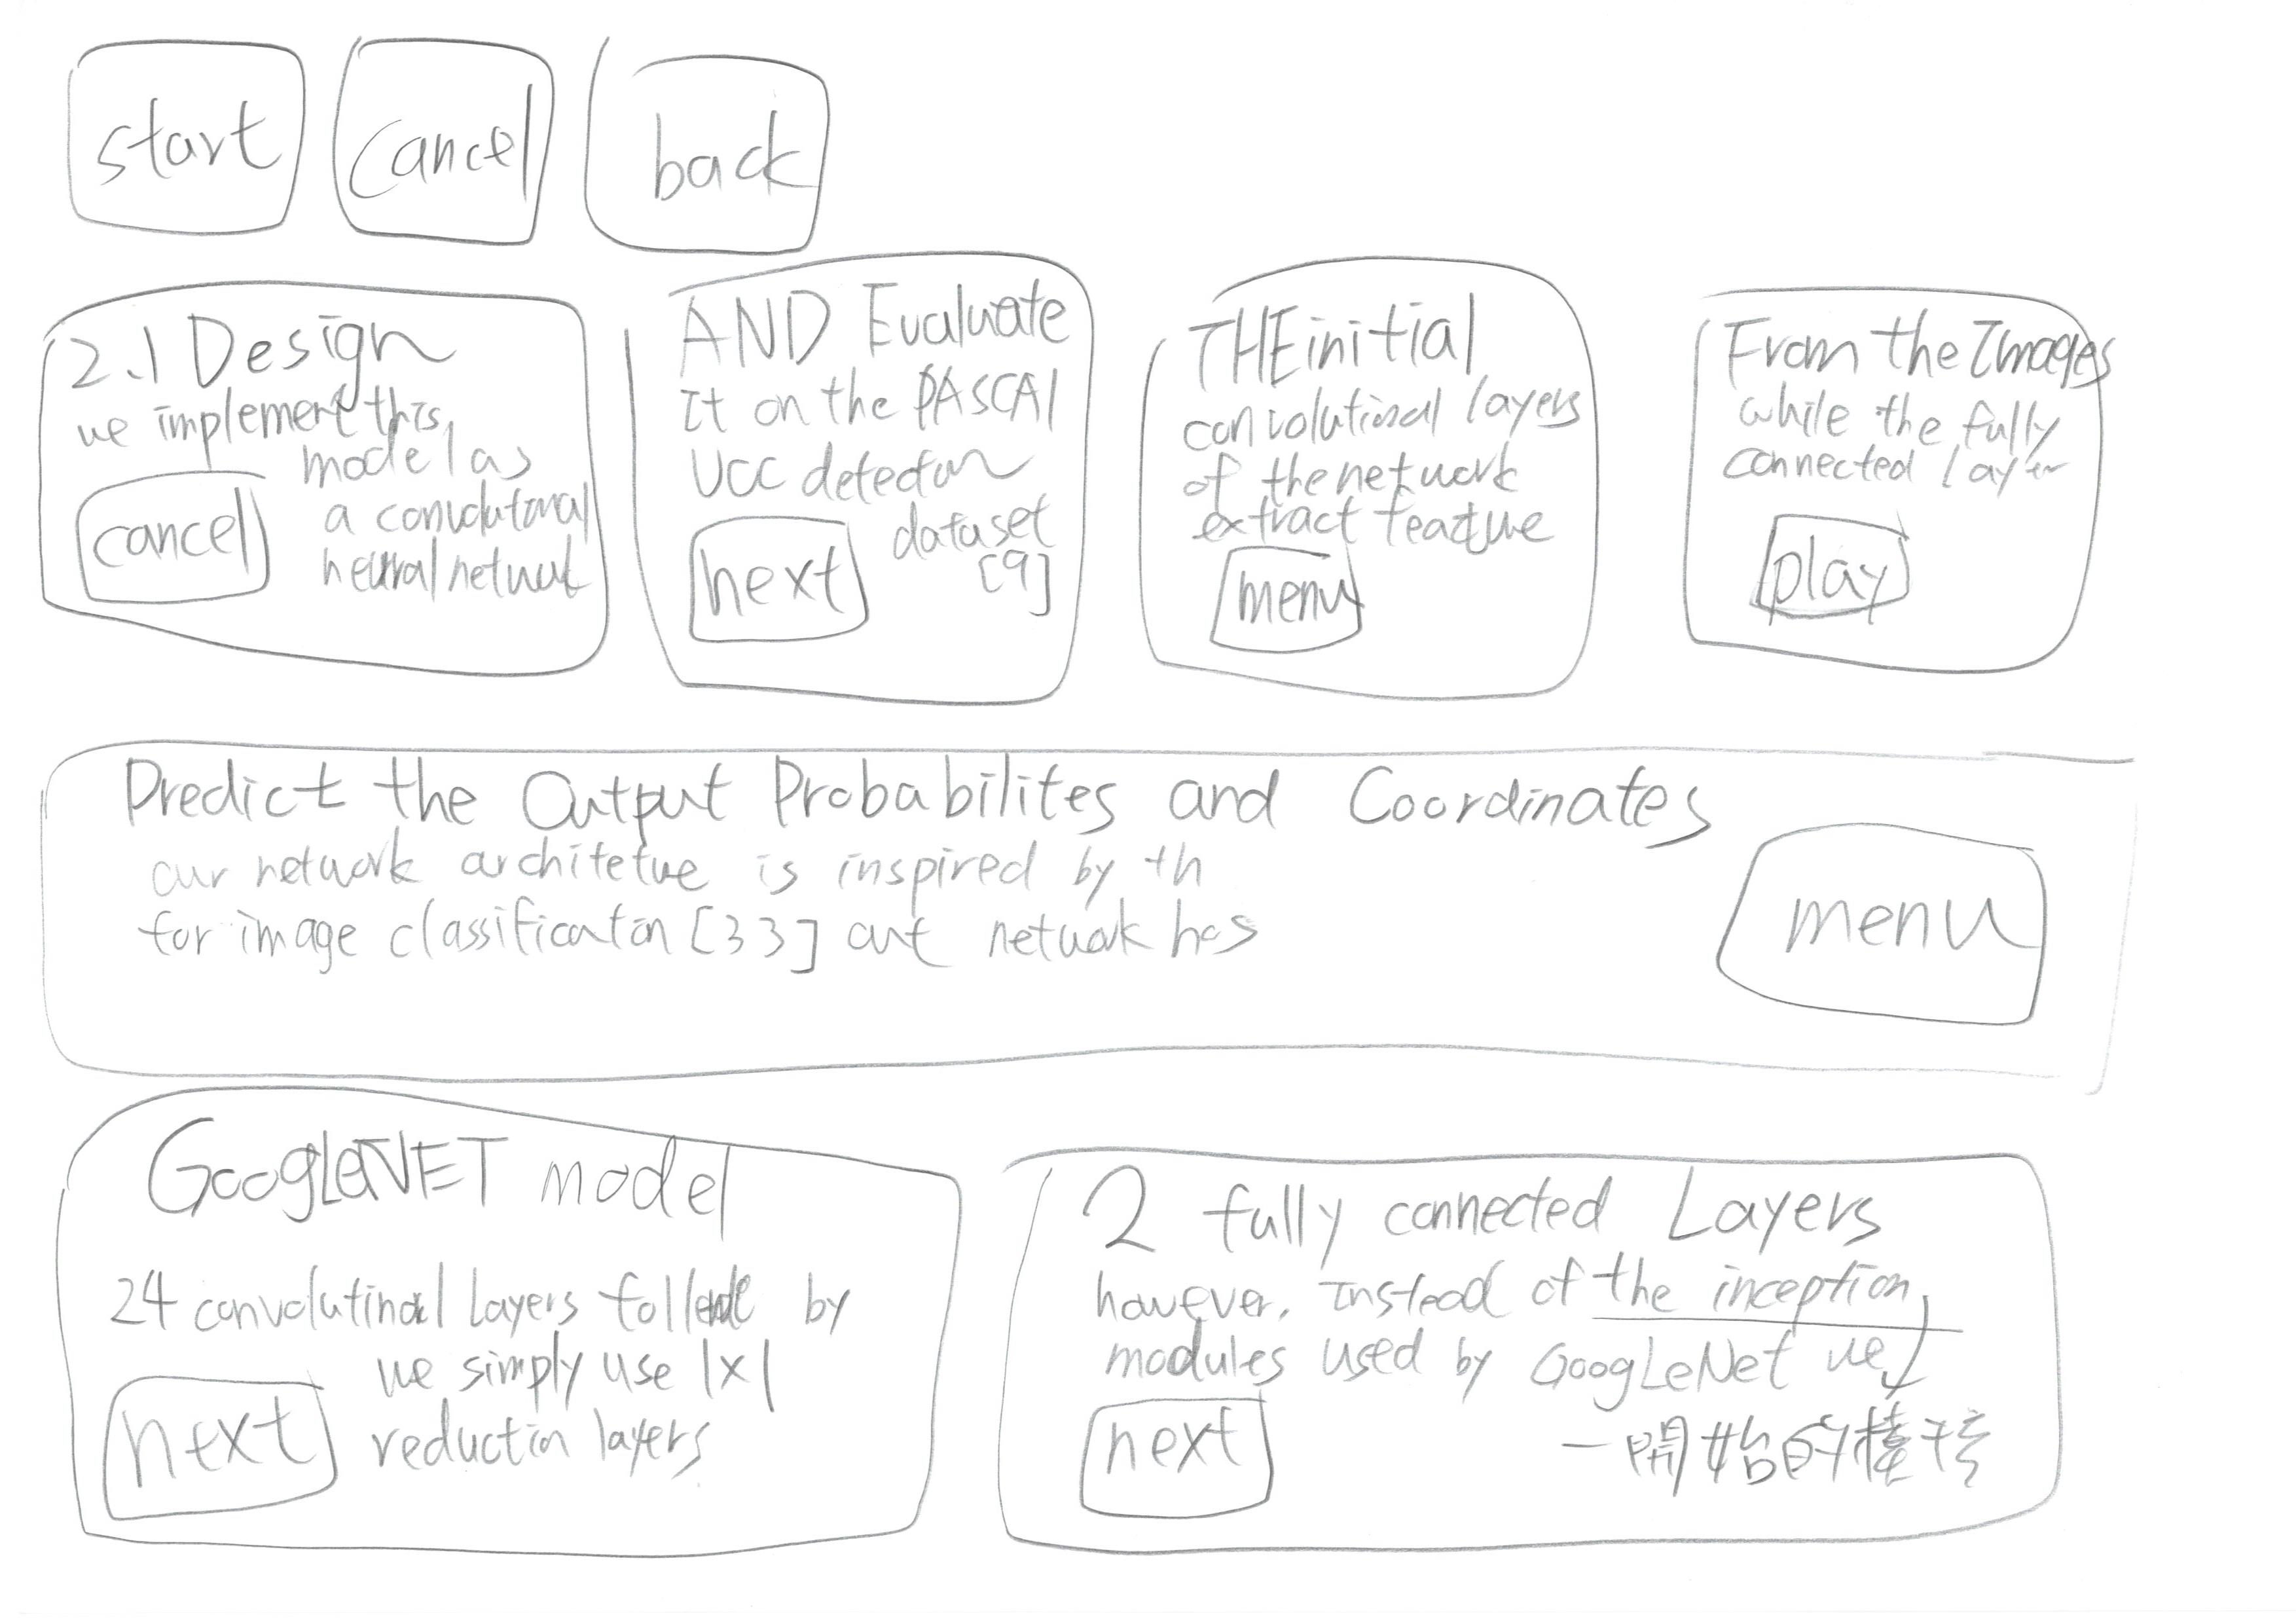 start
cancel
back
2.1 Design
we implement this,
model as
a convolutional
neural network
cancel
AND Evaluate
It on the PASCAl
UCC detection
dataset
[9]
next
THE initial
convolutional layers
of the network
extract feature
menu
From the Images
while the fully
connected layer
play
Predict the Output Probabilites and Coordinates
our network architetue is inspired by th
for image classification [33] our network has
menu
GoogLeNET model
24 convolutinal Layers by
we simply use 1x1
reduction layers
next
2 fully connected Layers
however, Instead of the inception
modules used by GoogLeNet we
next
一開始的